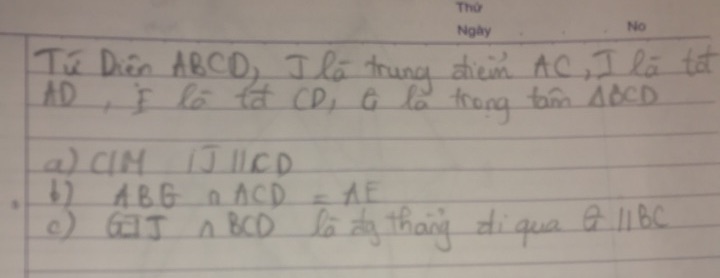 Thứ
Ngày No
Tứ Diên ABCD, J là trung điểm AC, I là tđ
AD, E là tđ CD, G là trọng tâm ΔBCD
a) C/M IJ//CD
b) ABG ∩ ACD = AE
c) GIJ ∩ BCD là đg thẳng đi qua G //BC